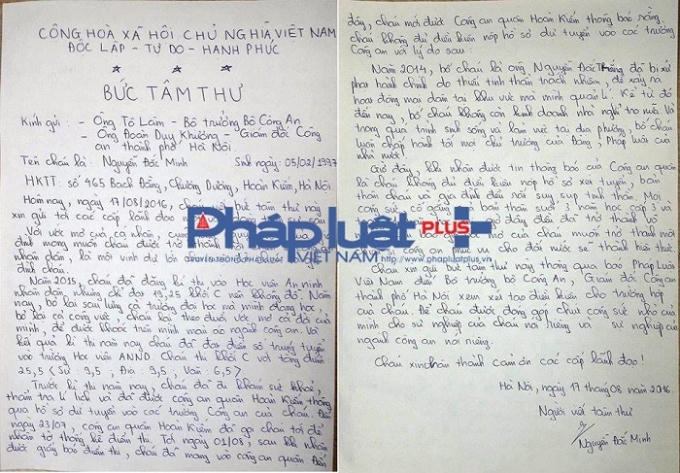 CỘNG HÒA XÃ HỘI CHỦ NGHĨA VIỆT NAM
ĐỘC LẬP - TỰ DO - HẠNH PHÚC
BỨC TÂM THƯ
Kính gửi: - Ông Tô Lâm - Bộ trưởng Bộ Công An
- Ông Đoàn Duy Khương - Giám đốc Công
an thành phố Hà Nội
Tên cháu là: Nguyễn Đức Minh Sinh ngày: 05/02/1997
HKTT: số 465 Bạch Đằng, Chương Dương, Hoàn Kiếm, Hà Nội
Hôm nay, ngày 17/08/2016, cháu viết bức tâm thư này
xin gửi tới các cấp lãnh đạo
Với ước mơ của cá nhân
mong muốn cháu được trở
nhân dân, là một vinh dự lớn
đình cháu.
Năm 2015, cháu đã đăng kí thi vào Học viện An ninh
nhân dân nhưng chỉ đạt 19,25 khối C nên không đỗ. Năm
nay, bỏ lại sau lưng cả trường đại học mà mình đang học,
bỏ lại cả công việc, cháu lại tiếp theo đuổi ước mơ của
mình, để được khoác trên mình màu áo ngành công an. Và
kết quả kì thi năm nay cháu đã đạt điểm số trúng tuyển
vào trường Học viện ANND. Cháu thi khối C với tổng điểm
25,5 < Sử 9,5 ; Địa: 9,5 ; Văn: 6,5 >
Trước kì thi năm nay, cháu đã đi khám sức khoẻ,
thẩm tra lí lịch và đã được công an quận Hoàn Kiếm thông
qua hồ sơ dự tuyển vào các trường Công an của cháu. Đến
ngày 23/07, công an quận Hoàn Kiếm đã gọi cháu tới để
nhận tờ thống kê điểm thi. Tới ngày 01/08, sau khi nhận
được giấy báo điểm thi, cháu đã mang vào công an quận. Đến
đây, cháu mới được Công an quận Hoàn Kiếm thông báo rằng
cháu không đủ điều kiện nộp hồ sơ dự tuyển vào các trường
Công an với lý do sau:
Năm 2014, bố cháu là ông Nguyễn Đức Thắng đã bị xử
phạt hành chính do thiếu tinh thần trách nhiệm, để xảy ra
hoạt động mại dâm tại khu vực mà mình quản lí. Kể từ đó
đến nay, bố cháu không còn kinh doanh nhà nghỉ trọ nữa. Và
trong quá trình sinh sống và làm việc tại địa phương, bố cháu
luôn chấp hành tốt mọi chủ trương của Đảng, Pháp luật của
nhà nước.
Giờ đây, khi nhận được tin thông báo của Công an quận
là cháu không đủ điều kiện nộp hồ sơ xét tuyển, bản
thân cháu và gia đình đều rơi suy sụp tinh thần. Mọi
công
của cháu muốn trở thành một
công an phục vụ cho đất nước sẽ thành hiện thực
Cháu xin gửi bức tâm thư này thông qua báo Pháp luật
Việt Nam đến Bộ trưởng bộ Công an, Giám đốc Công an
thành phố Hà Nội xem xét tạo điều kiện cho trường hợp
của cháu. Để cháu được đóng góp chút công sức nhỏ của
mình cho sự nghiệp của cháu nói riêng và sự nghiệp của
ngành công an nói chung.
Cháu xin chân thành cảm ơn các cấp lãnh đạo!
Hà Nội, ngày 17 tháng 08 năm 2016.
Người viết tâm thư
Nguyễn Đức Minh
Pháp luật PLUS+
VIỆT NAM
www.phapluatplus.vn